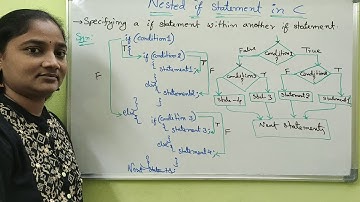 Nested if statement in C
→ Specifying a if statement within another if statement.
Syn:
if (condition1)
{
if (condition2)
{ statement1;
}
else
{ statement2;
}
}
else
{
if (condition 3)
{ statement 3;
}
else
{ statement 4;
}
}
Next statements
T
T
F
F
T
F
False
Condition1
True
F
Condition3
T
F
Condition2
T
State-4
Stat-3
Statement2
Statement1
Next statements